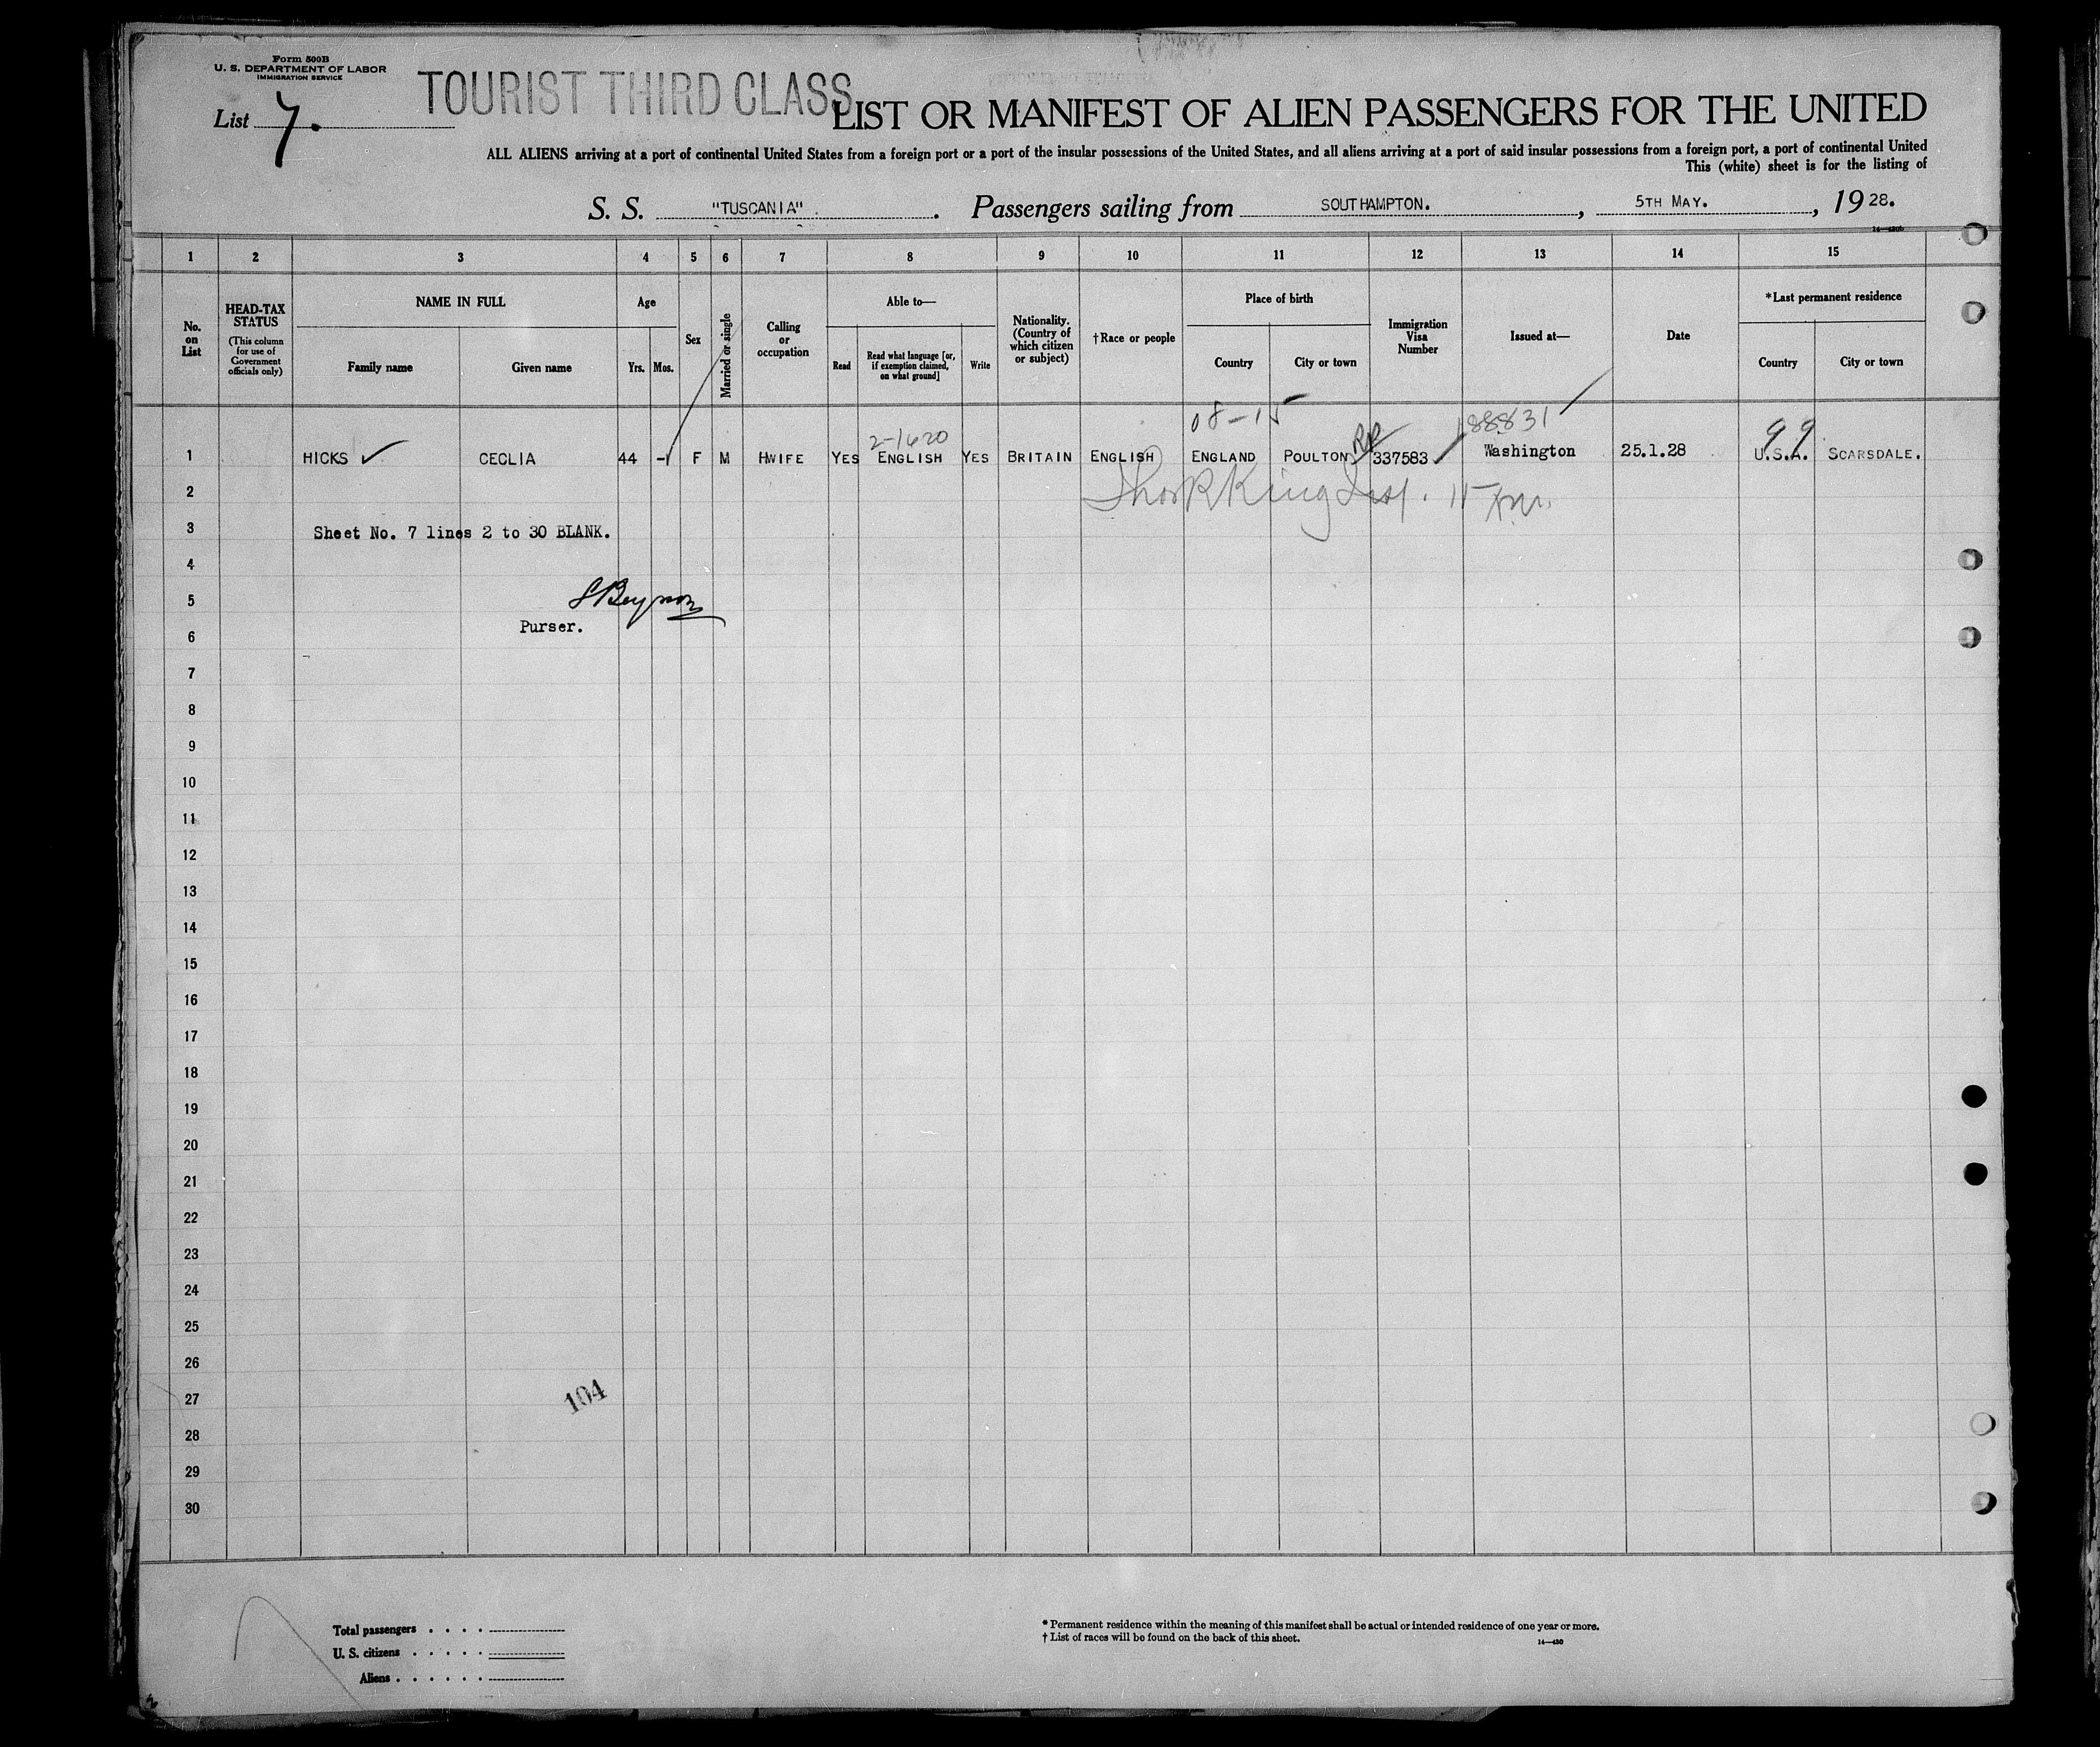 Form 500B
U. S. DEPARTMENT OF LABOR
IMMIGRATION SERVICE
TOURIST THIRD CLASS
List 7.
LIST OR MANIFEST OF ALIEN PASSENGERS FOR THE UNITED
ALL ALIENS arriving at a port of continental United States from a foreign port or a port of the insular possessions of the United States, and all aliens arriving at a port of said insular possessions from a foreign port, a port of continental United
This (white) sheet is for the listing of
S. S. "TUSCANIA" . Passengers sailing from SOUTHAMPTON. , 5TH MAY. , 19 28.
14—430b
1 2 3 4 5 6 7 8 9 10 11 12 13 14 15
No. on List
HEAD-TAX STATUS (This column for use of Government officials only)
NAME IN FULL
Family name Given name
Age
Yrs. Mos.
Sex
Married or single
Calling or occupation
Able to—
Read Read what language [or, if exemption claimed, on what ground] Write
Nationality. (Country of which citizen or subject)
†Race or people
Place of birth
Country City or town
Immigration Visa Number
Issued at—
Date
*Last permanent residence
Country City or town
08-15 188831
2-1620 RP 99
1 HICKS ✓ CECLIA 44 - F M HWIFE YES ENGLISH YES BRITAIN ENGLISH ENGLAND POULTON 337583 Washington 25.1.28 U.S.A. SCARSDALE.
2 King Insp.
3 Sheet No. 7 lines 2 to 30 BLANK.
4
5
6 Purser.
7
8
9
10
11
12
13
14
15
16
17
18
19
20
21
22
23
24
25
26
27 104
28
29
30
Total passengers . . . .
U. S. citizens . . . . .
Aliens . . . . . .
* Permanent residence within the meaning of this manifest shall be actual or intended residence of one year or more.
† List of races will be found on the back of this sheet.
14—430